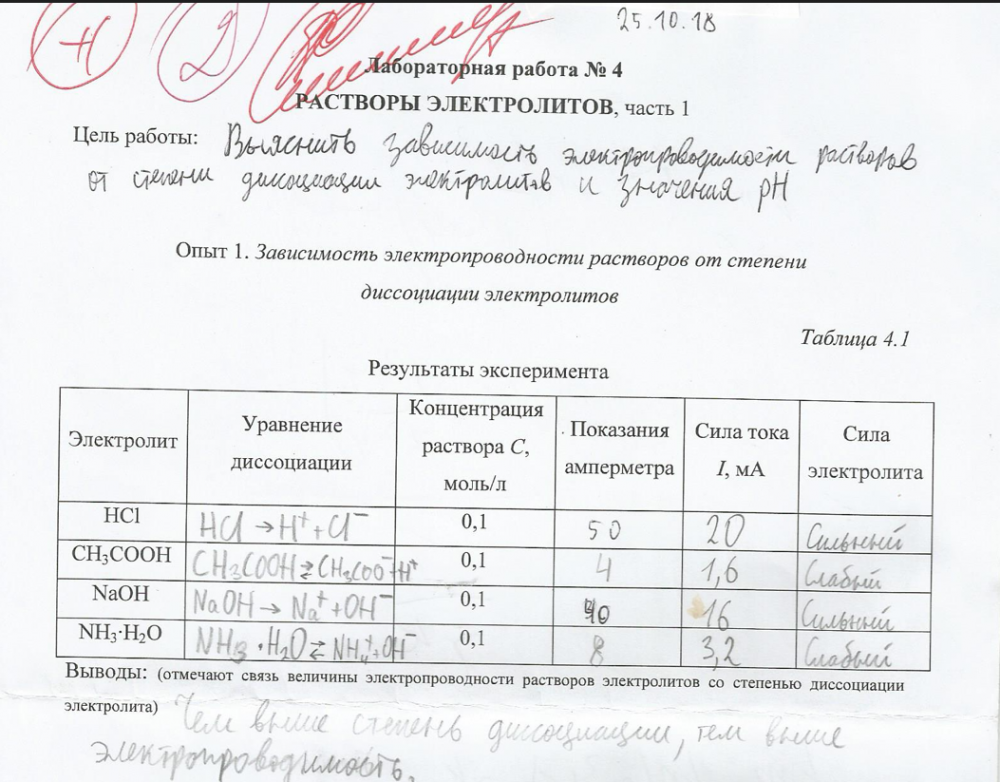 25.10.18
Н
Лабораторная работа № 4
РАСТВОРЫ ЭЛЕКТРОЛИТОВ, часть 1
Цель работы: Выяснить зависимость электропроводимости растворов
от степени диссоциации электролитов и значения pH
Опыт 1. Зависимость электропроводности растворов от степени
диссоциации электролитов
Таблица 4.1
Результаты эксперимента
Электролит Уравнение диссоциации Концентрация раствора C, моль/л Показания амперметра Сила тока I, мА Сила электролита
HCl HCl → H⁺ + Cl⁻ 0,1 50 20 Сильный
CH₃COOH CH₃COOH ⇄ CH₃COO⁻ + H⁺ 0,1 4 1,6 Слабый
NaOH NaOH → Na⁺ + OH⁻ 0,1 40 16 Сильный
NH₃·H₂O NH₃·H₂O ⇄ NH₄⁺ + OH⁻ 0,1 8 3,2 Слабый
Выводы: (отмечают связь величины электропроводности растворов электролитов со степенью диссоциации
электролита) Чем выше степень диссоциации, тем выше
электропроводимость.